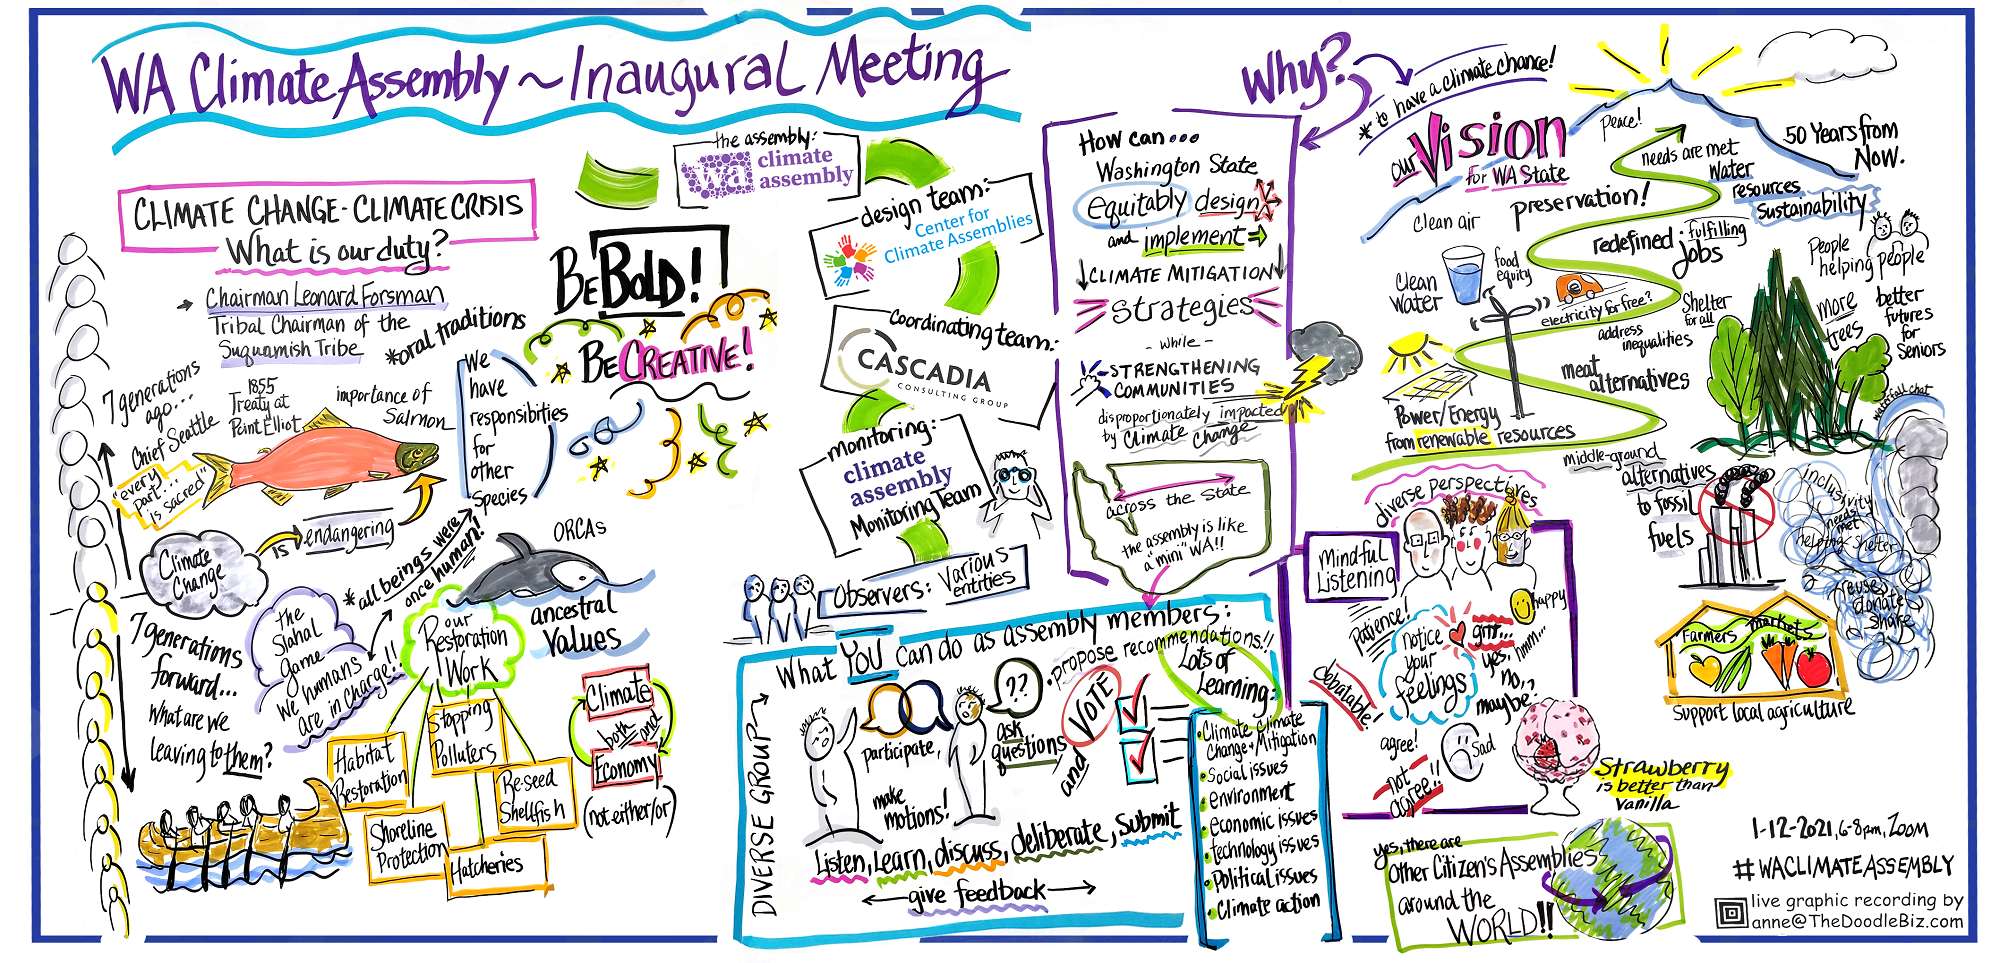 WA Climate Assembly ~ Inaugural Meeting
CLIMATE CHANGE - CLIMATE CRISIS
What is our duty?
Chairman Leonard Forsman
Tribal Chairman of the
Suquamish Tribe
*oral traditions
7 generations
ago...
Chief Seattle
"every
part...
is sacred"
1855
Treaty at
Point Elliot
importance of
Salmon
We
have
responsibities
for
other
Species
Climate
Change
is
endangering
*all beings were
once human!
ORCAs
ancestral
Values
7 generations
forward...
What are we
leaving to them?
the
Slahal
Game
We humans
are in charge!!
our
Restoration
Work
Habitat
Restoration
Stopping
Polluters
Re-seed
Shellfish
Shoreline
Protection
Hatcheries
Climate
both and
Economy
(not either/or)
Be BOLD!
Be CREATIVE!
the assembly:
wa
climate
assembly
design team:
Center for
Climate Assemblies
Coordinating team:
CASCADIA
CONSULTING GROUP
monitoring:
climate
assembly
Monitoring Team
Observers: Various
entities
Why?
* to have a climate chance!
How can...
Washington State
equitably design
and implement
CLIMATE MITIGATION
Strategies
- while -
STRENGTHENING
COMMUNITIES
disproportionately impacted
by Climate Change
across the State
the assembly is like
a "mini" WA!!
DIVERSE GROUP
What YOU can do as assembly members:
participate,
make
motions!
??
ask
questions
and
VOTE
• propose recommendations!!
Listen, Learn, discuss, deliberate, submit
give feedback
Lots of
Learning:
• Climate Climate
Change + Mitigation
• Social issues
• environment
• economic issues
• technology issues
• Political issues
• Climate action
our Vision
for WA State
Peace!
50 Years from
Now.
needs are met
Water
resources
Sustainability
preservation!
Clean air
redefined: fulfilling
Jobs
People
helping people
Clean
Water
food
equity
electricity for free?
Shelter
for all
address
inequalities
more
trees
better
futures
for
Seniors
meat
alternatives
Power/Energy
from renewable resources
middle-ground
alternatives
to fossil
fuels
waterfall chat
inclusivity
needs
met
helping shelter
reuse
donate
share
Farmers markets
Support local agriculture
diverse perspectives
Mindful
Listening
Patience!
notice
your
feelings
happy
grrr...
hmm...
yes,
no,
maybe?
debatable!
agree!
not
agree!!
Sad
Strawberry
is better than
Vanilla
yes, there are
Other Citizen's Assemblies
around the
WORLD!!
1-12-2021, 6-8pm, Zoom
#WACLIMATEASSEMBLY
live graphic recording by
anne@TheDoodleBiz.com